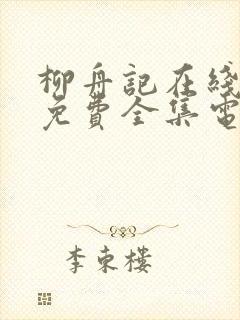 柳舟記在綫
免費全集電
李東樓